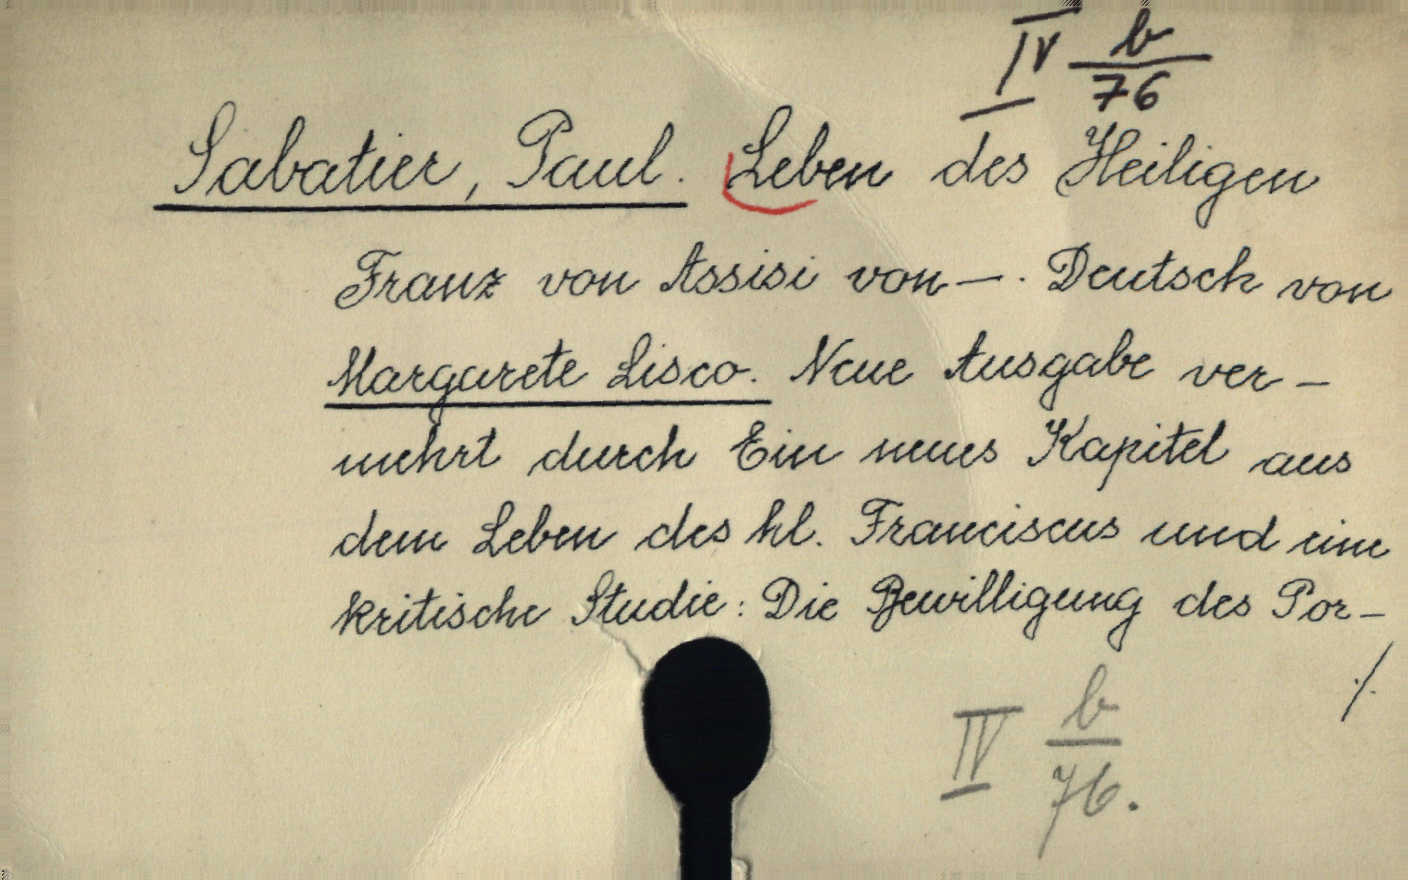 IV b/76
Sabatier, Paul. Leben des Heiligen
Franz von Assisi von —. Deutsch von
Margarete Lisco. Neue Ausgabe ver-
mehrt durch Ein neues Kapitel aus
dem Leben des hl. Franciscus und eine
kritische Studie: Die Bewilligung des Por-
./.
IV b/76.